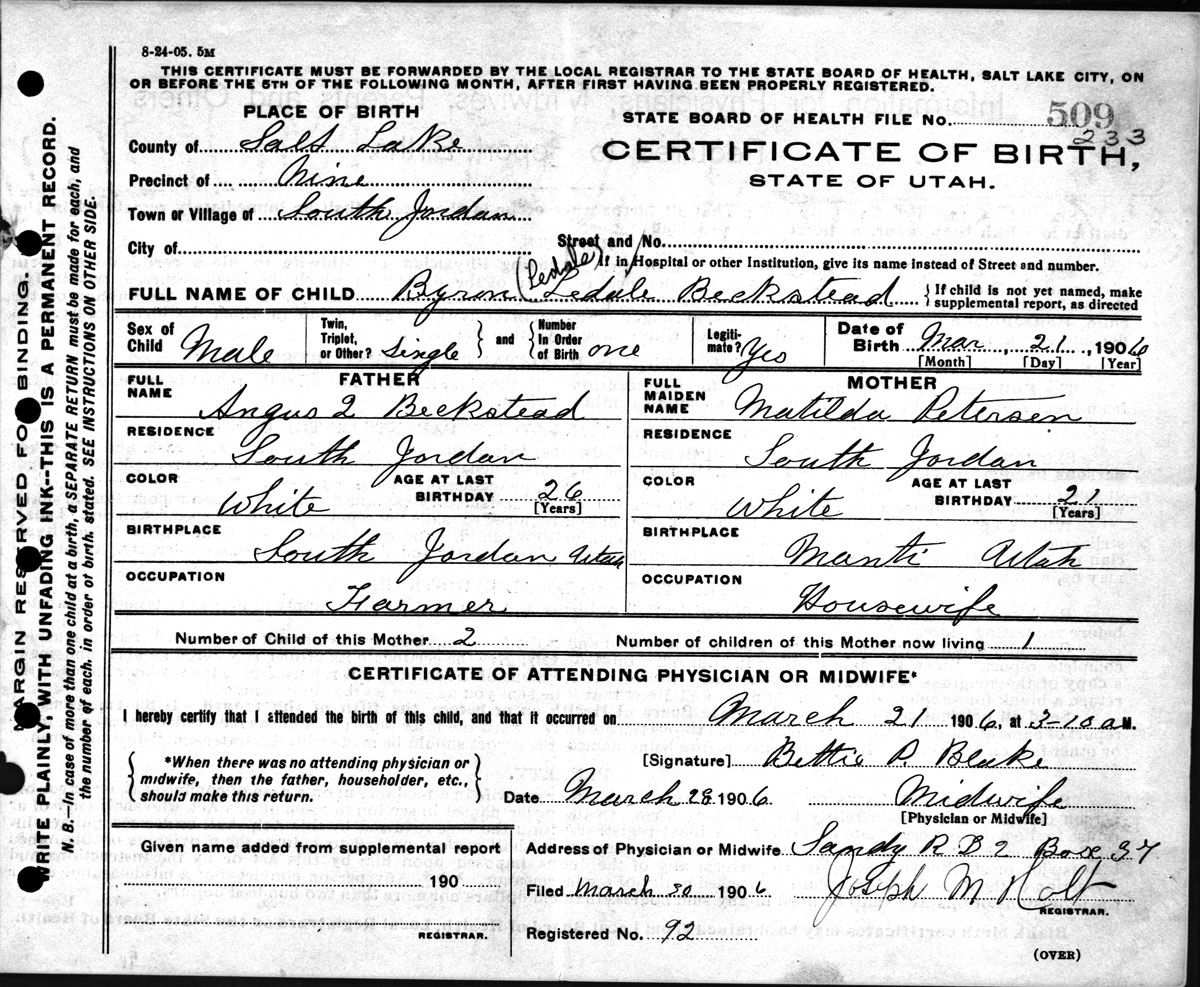 8-24-05. 5M
THIS CERTIFICATE MUST BE FORWARDED BY THE LOCAL REGISTRAR TO THE STATE BOARD OF HEALTH, SALT LAKE CITY, ON
OR BEFORE THE 5TH OF THE FOLLOWING MONTH, AFTER FIRST HAVING BEEN PROPERLY REGISTERED.
PLACE OF BIRTH
STATE BOARD OF HEALTH FILE No. 509
233
County of Salt Lake
CERTIFICATE OF BIRTH,
Precinct of Nine
STATE OF UTAH.
Town or Village of South Jordan
City of Street and No.
(Ledale) If in Hospital or other Institution, give its name instead of Street and number.
FULL NAME OF CHILD Byron Ledale Beckstead { If child is not yet named, make
supplemental report, as directed
Sex of Child Male Twin, Triplet, or Other? Single and Number In Order of Birth one Legitimate? Yes Date of Birth Mar, 21, 1906
[Month] [Day] [Year]
FATHER MOTHER
FULL NAME Angus L Beckstead FULL MAIDEN NAME Matilda Petersen
RESIDENCE South Jordan RESIDENCE South Jordan
COLOR White AGE AT LAST BIRTHDAY 26 [Years] COLOR White AGE AT LAST BIRTHDAY 21 [Years]
BIRTHPLACE South Jordan Utah BIRTHPLACE Manti Utah
OCCUPATION Farmer OCCUPATION Housewife
Number of Child of this Mother 2 Number of children of this Mother now living 1
CERTIFICATE OF ATTENDING PHYSICIAN OR MIDWIFE*
I hereby certify that I attended the birth of this child, and that it occurred on March 21 1906, at 3-10 a M.
{ *When there was no attending physician or
midwife, then the father, householder, etc.,
should make this return. }
[Signature] Bettie P Blake
Date March 28 1906 Midwife
[Physician or Midwife]
Given name added from supplemental report
190
REGISTRAR.
Address of Physician or Midwife Sandy R D 2 Box 37
Filed March 30 1906 Joseph M Holt
REGISTRAR.
Registered No. 92
(OVER)
MARGIN RESERVED FOR BINDING.
WRITE PLAINLY, WITH UNFADING INK--THIS IS A PERMANENT RECORD.
N. B.--In case of more than one child at a birth, a SEPARATE RETURN must be made for each, and
the number of each, in order of birth, stated. SEE INSTRUCTIONS ON OTHER SIDE.